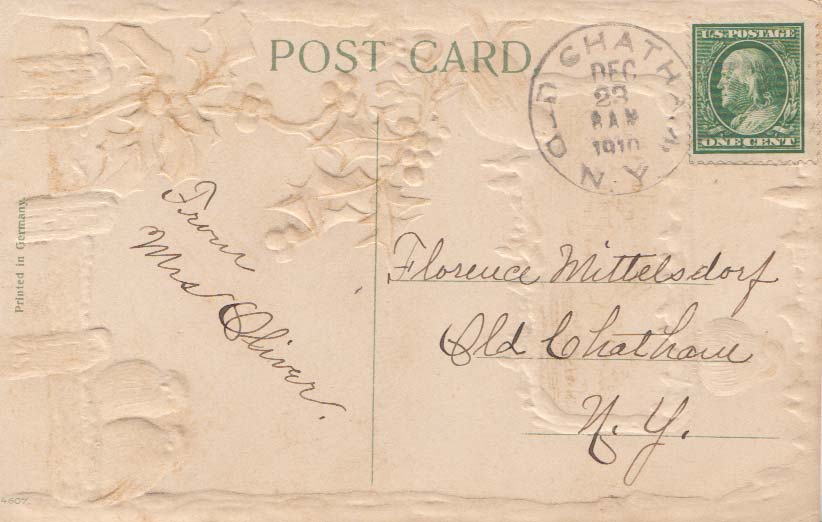 POST CARD
OLD CHATHAM,
DEC
23
8 AM
1910
N.Y.
U.S. POSTAGE
ONE CENT
Printed in Germany.
From
Mrs Oliver.
Florence Mittelsdorf
Old Chatham
N. Y.
4607.